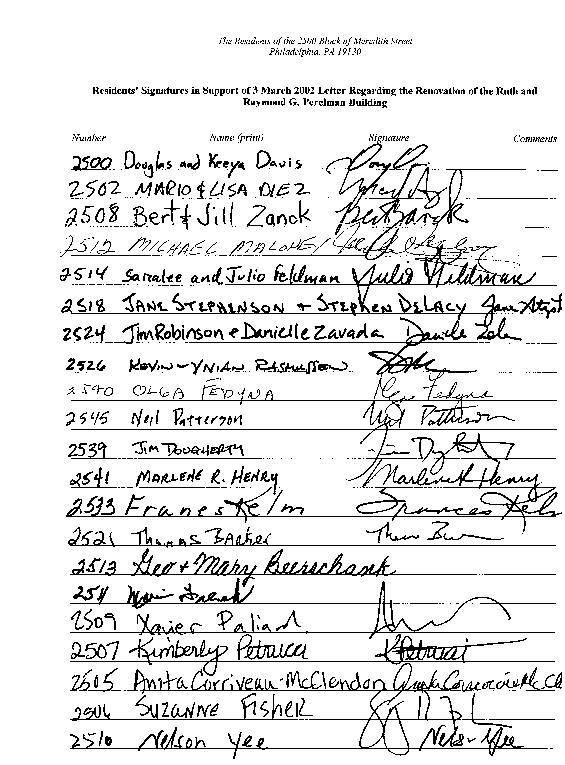 The Residents of the 2500 Block of Meredith Street
Philadelphia, PA 19130
Residents' Signatures in Support of 3 March 2002 Letter Regarding the Renovation of the Ruth and
Raymond G. Perelman Building
Number Name (print) Signature Comments
2500 Douglas and Keeya Davis
2502 MARIO & LISA DIEZ
2508 Bert & Jill Zanck
2512 MICHAEL MALONEY
2514 Sairalee and Julio Feldman Julio Feldman
2518 JANE STEPHENSON + STEPHEN DELACY Jane
2524 Jim Robinson & Danielle Zavada Danielle
2526 KEVIN
2540 OLGA FEDYNA Olga Fedyna
2545 Neil Patterson Neil Patterson
2539 JIM DOUGHERTY
2541 MARLENE R. HENRY Marlene R Henry
2533 Frances Kelm Frances Kelm
2521 Thomas Barker
2513 Geo + Mary Beerschank
2511
2509 Xavier Paliad
2507 Kimberly Petrucci K Petrucci
2505 Anita Corriveau-McClendon
2506 SUZANNE FISHER
2510 Nelson Yee Nelson Yee